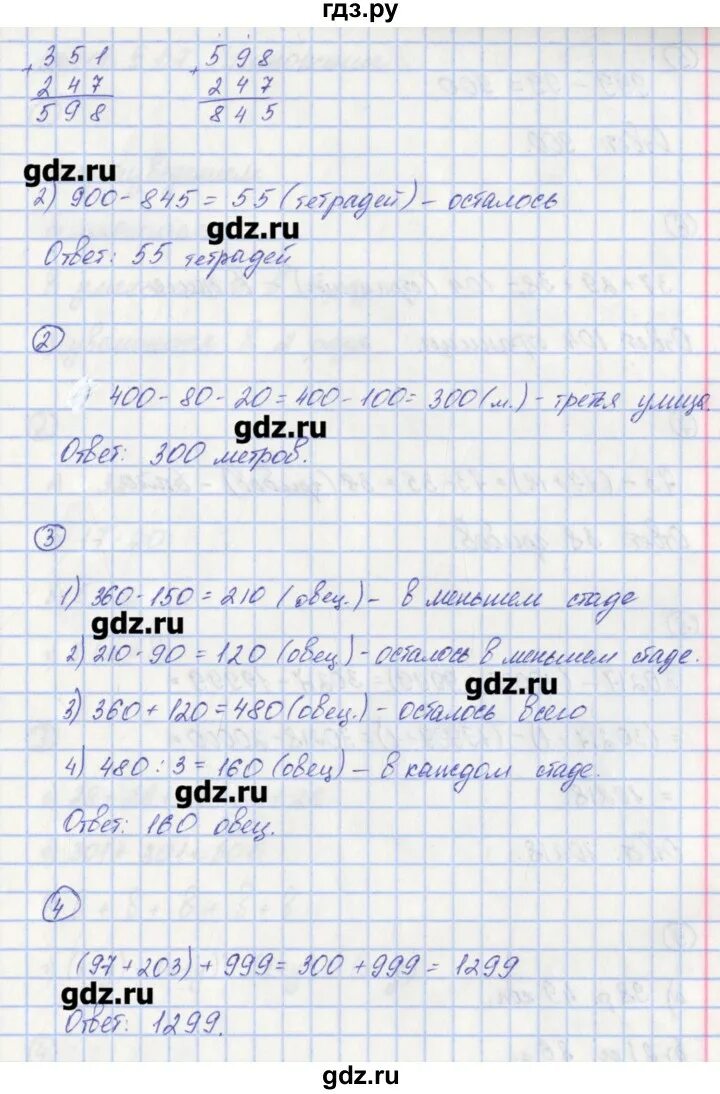 гдз.ру
+ 351
247
598
+ 598
247
845
gdz.ru
2) 900 - 845 = 55 (тетрадей) - осталось
gdz.ru
Ответ: 55 тетрадей
2
400 - 80 - 20 = 400 - 100 = 300 (м.) - третья улица.
gdz.ru
Ответ: 300 метров.
3
1) 360 - 150 = 210 (овец.) - в меньшем стаде
gdz.ru
2) 210 - 90 = 120 (овец) - осталось в меньшем стаде.
gdz.ru
3) 360 + 120 = 480 (овец.) - осталось всего
4) 480 : 3 = 160 (овец) - в каждом стаде.
gdz.ru
Ответ: 160 овец.
4
(97 + 203) + 999 = 300 + 999 = 1299
gdz.ru
Ответ: 1299.
gdz.ru